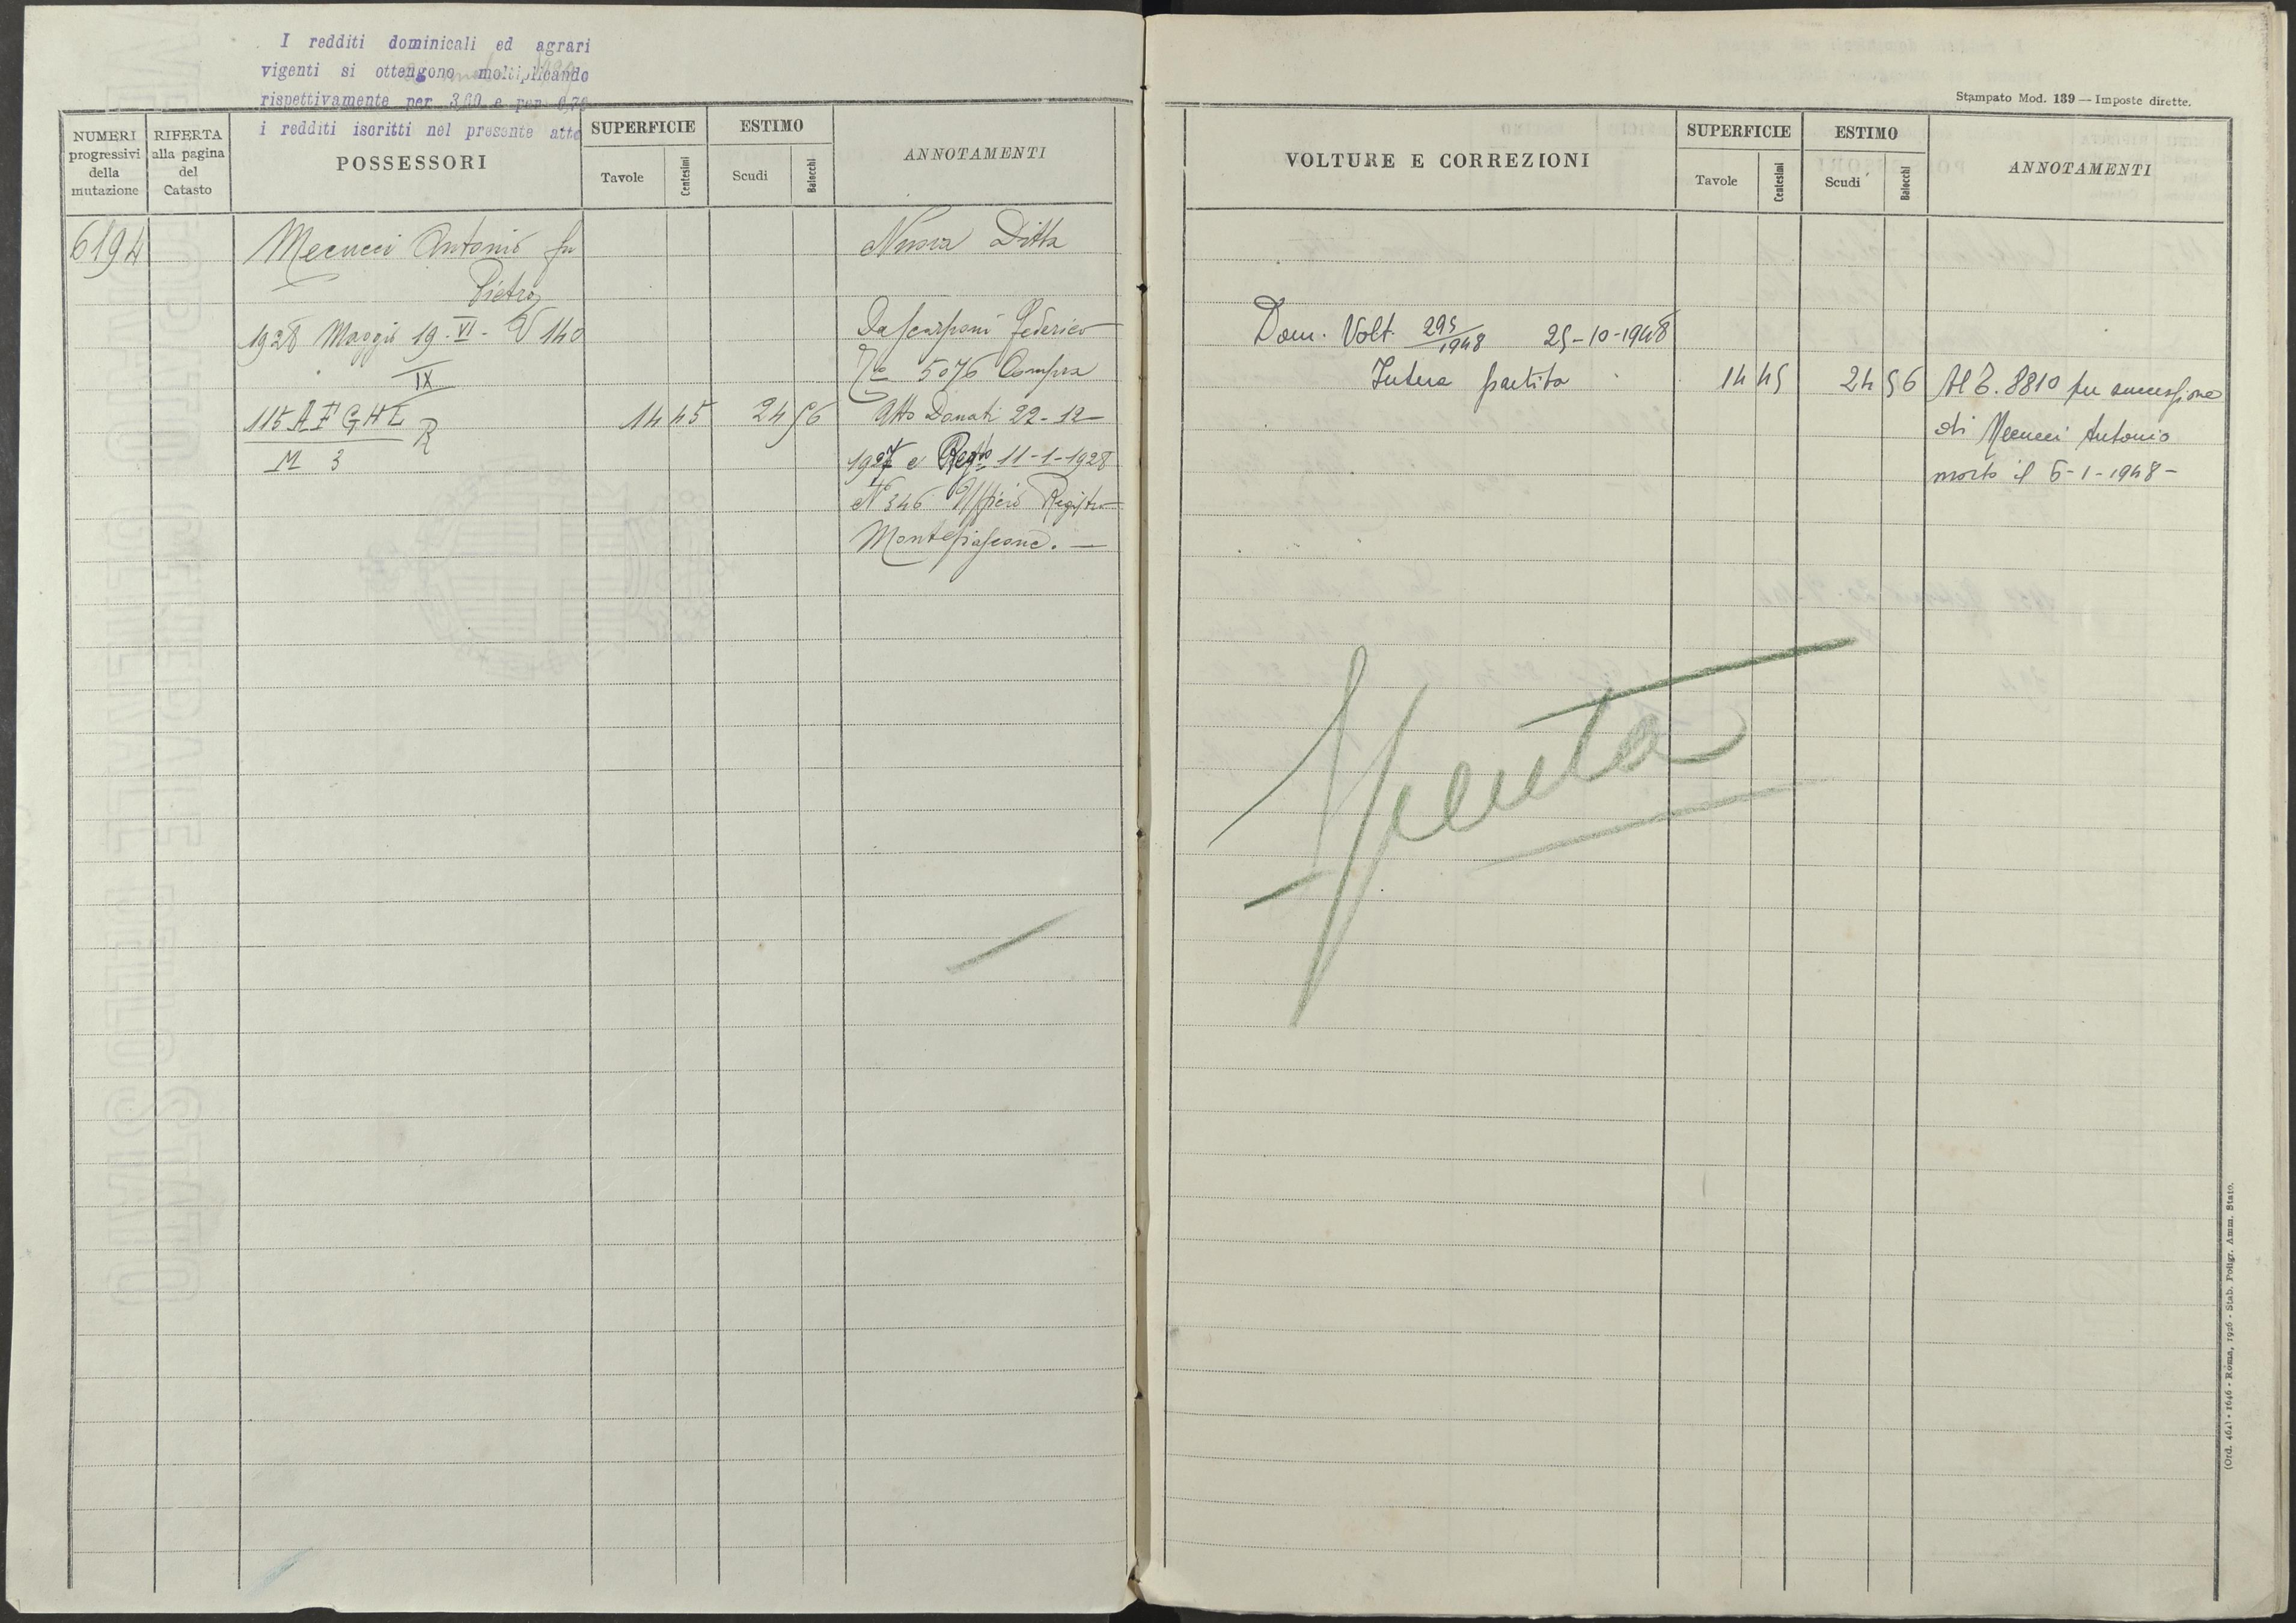 I redditi dominicali ed agrari
vigenti si ottengono moltiplicando
rispettivamente per 3,60 e per 0,75
i redditi iscritti nel presente atto
NUMERI
progressivi
della
mutazione
RIFERTA
alla pagina
del
Catasto
POSSESSORI
SUPERFICIE
Tavole
Centesimi
ESTIMO
Scudi
Baiocchi
ANNOTAMENTI
6194
Mecucci Antonio fu
Pietro
1928 Maggio 19. VI - V 140
IX
115 A F G H L R
M 3
14 45
24 56
Nuova Ditta
Da Scarponi Federico
5076 Compra
Atto Donati 22-12-
1927 e Regto 11-1-1928
N° 346 Ufficio Registro
Montefiascone. —
Stampato Mod. 139 — Imposte dirette.
VOLTURE E CORREZIONI
SUPERFICIE
Tavole
Centesimi
ESTIMO
Scudi
Baiocchi
ANNOTAMENTI
Dom. Volt. 295/1948 25-10-1948
Intera partita
14 45
24 56
Al T. 8810 per successione
di Mecucci Antonio
morto il 6-1-1948-
Spenta
(Ord. 464) - 1646 - Roma, 1926 - Stab. Poligr. Amm. Stato.